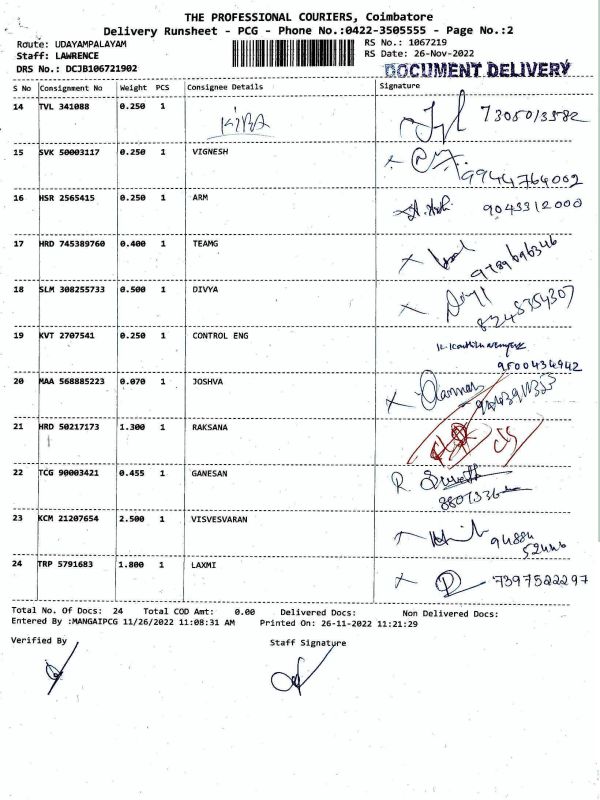 THE PROFESSIONAL COURIERS, Coimbatore
Delivery Runsheet - PCG - Phone No.:0422-3505555 - Page No.:2
Route: UDAYAMPALAYAM
RS No.: 1067219
Staff: LAWRENCE
RS Date: 26-Nov-2022
DRS No.: DCJB106721902
DOCUMENT DELIVERY
S No Consignment No Weight PCS Consignee Details Signature
14 TVL 341088 0.250 1 7305013582
15 SVK 50003117 0.250 1 VIGNESH 9944764002
16 HSR 2565415 0.250 1 ARM 9043312000
17 HRD 745389760 0.400 1 TEAMG 9789696346
18 SLM 308255733 0.500 1 DIVYA 8248354307
19 KVT 2707541 0.250 1 CONTROL ENG
9500434942
20 MAA 568885223 0.070 1 JOSHVA
21 HRD 50217173 1.300 1 RAKSANA
22 TCG 90003421 0.455 1 GANESAN
23 KCM 21207654 2.500 1 VISVESVARAN 94884
52446
24 TRP 5791683 1.800 1 LAXMI 7397522297
Total No. Of Docs: 24 Total COD Amt: 0.00 Delivered Docs: Non Delivered Docs:
Entered By :MANGAIPCG 11/26/2022 11:08:31 AM Printed On: 26-11-2022 11:21:29
Verified By Staff Signature